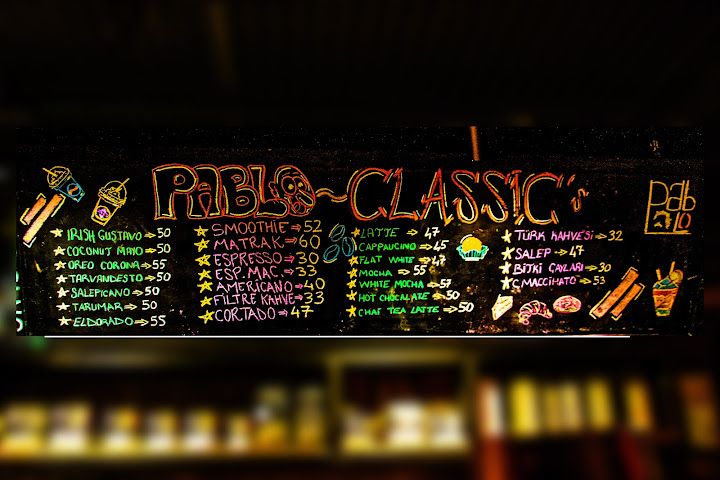 PABLO ~ CLASSIC
Pablo
IRISH GUSTAVO → 50
COCONUT MAYO → 50
OREO CORONA → 55
TARVANDESTO → 50
SALEPICANO → 50
TARUMAR → 50
ELDORADO → 55
SMOOTHIE → 52
MATRAK → 60
ESPRESSO → 30
ESP. MAC. → 33
AMERICANO → 40
FILTRE KAHVE → 33
CORTADO → 47
LATTE → 47
CAPPUCINO → 45
FLAT WHITE → 47
MOCHA → 55
WHITE MOCHA → 57
HOT CHOCALATE → 50
CHAI TEA LATTE → 50
TÜRK KAHVESİ → 32
SALEP → 47
BİTKİ ÇAYLARI → 30
C. MACCIHATO → 53